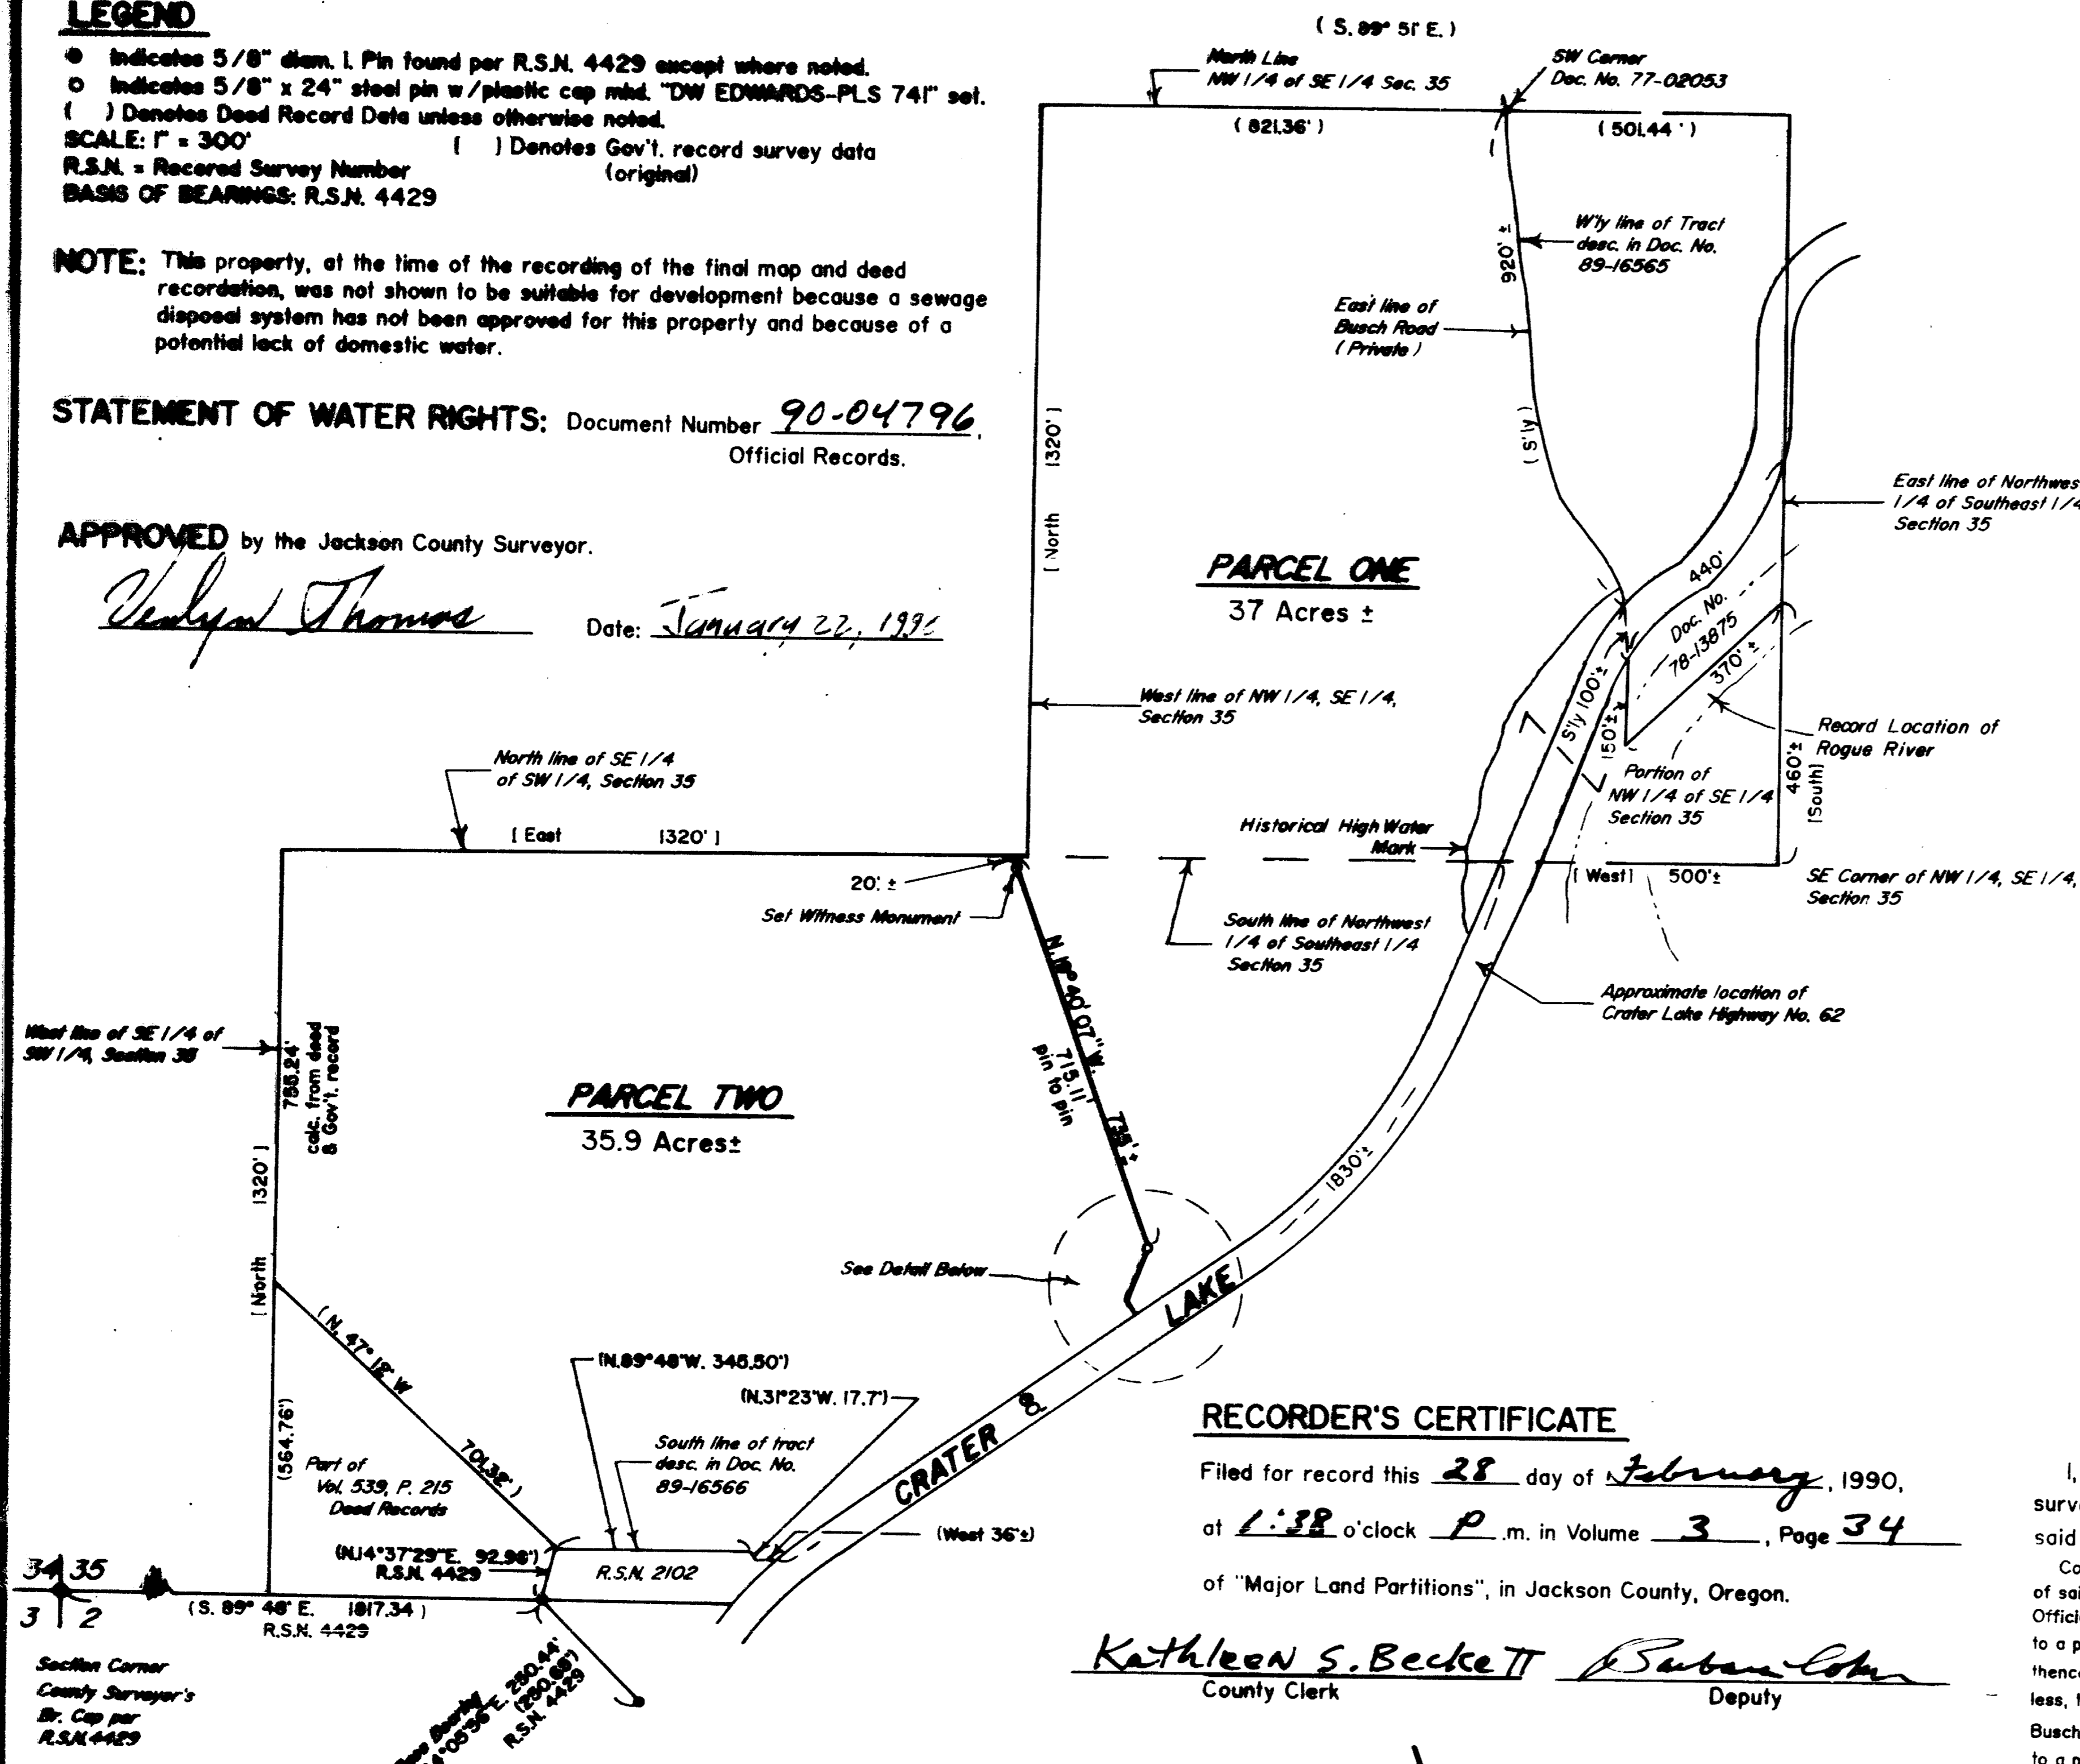 LEGEND
● Indicates 5/8" diam. I. Pin found per R.S.N. 4429 except where noted.
○ Indicates 5/8" x 24" steel pin w/plastic cap mkd. "DW EDWARDS-PLS 741" set.
( ) Denotes Deed Record Data unless otherwise noted.
SCALE: 1" = 300'
[ ] Denotes Gov't. record survey data
(original)
R.S.N. = Recored Survey Number
BASIS OF BEARINGS: R.S.N. 4429
NOTE: This property, at the time of the recording of the final map and deed
recordation, was not shown to be suitable for development because a sewage
disposal system has not been approved for this property and because of a
potential lack of domestic water.
STATEMENT OF WATER RIGHTS: Document Number 90-04796,
Official Records.
APPROVED by the Jackson County Surveyor.
Thomas
Date: January 22, 199
(S. 89° 51' E.)
North Line
NW 1/4 of SE 1/4 Sec. 35
SW Corner
Doc. No. 77-02053
(821.36')
(501.44')
W'ly line of Tract
desc. in Doc. No.
89-16565
920' ±
East line of
Busch Road
(Private)
(S'ly)
[North 1320']
East line of Northwes
1/4 of Southeast 1/4
Section 35
PARCEL ONE
37 Acres ±
440'
Doc. No.
78-13875
370' ±
S'ly 100'±
150'±
West line of NW 1/4, SE 1/4,
Section 35
Record Location of
Rogue River
460'±
[South]
Portion of
NW 1/4 of SE 1/4
Section 35
North line of SE 1/4
of SW 1/4, Section 35
[East 1320']
Historical High Water
Mark
20' ±
Set Witness Monument
[West] 500'±
SE Corner of NW 1/4, SE 1/4,
Section 35
South line of Northwest
1/4 of Southeast 1/4
Section 35
N. 19° 40' 07" W.
715.11'
pin to pin
735'±
Approximate location of
Crater Lake Highway No. 62
West line of SE 1/4 of
SW 1/4, Section 35
755.24'
calc. from deed
& Gov't. record
[North 1320']
PARCEL TWO
35.9 Acres±
1830'±
See Detail Below
LAKE
(N. 47° 12' W 701.32')
(N.89°48'W. 345.50')
(N.31°23'W. 17.7')
80'
CRATER
(564.76')
Part of
Vol. 539, P. 215
Deed Records
South line of tract
desc. in Doc. No.
89-16566
(West 36'±)
(N.14°37'29"E. 92.96')
R.S.N. 4429
R.S.N. 2102
34 35
3 2
(S. 89° 48' E. 1817.34)
R.S.N. 4429
Section Corner
County Surveyor's
Br. Cap per
R.S.N.4429
Bearing
4°05'56"E. 250.44'
(250.65')
R.S.N. 4429
RECORDER'S CERTIFICATE
Filed for record this 28 day of February, 1990,
at 1:38 o'clock P.m. in Volume 3, Page 34
of "Major Land Partitions", in Jackson County, Oregon.
Kathleen S. Beckett
County Clerk
Barbara
Deputy
I,
surv
said
Co
of sai
Offici
to a p
thence
less, t
Busch
to a